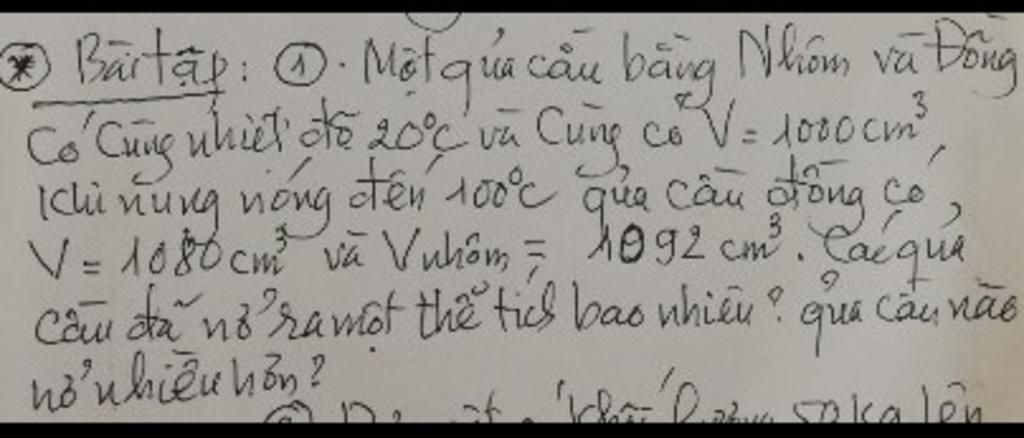 * Bài tập: ①. Một quả cầu bằng Nhôm và Đồng
Có Cùng nhiệt độ 20°C và Cùng có V = 1000 cm³
khi nung nóng đến 100°C quả cầu đồng có
V = 1080 cm³ và V nhôm = 1092 cm³. Các quả
cầu đã nở ra một thể tích bao nhiêu? quả cầu nào
nở nhiều hơn?
50kg lên